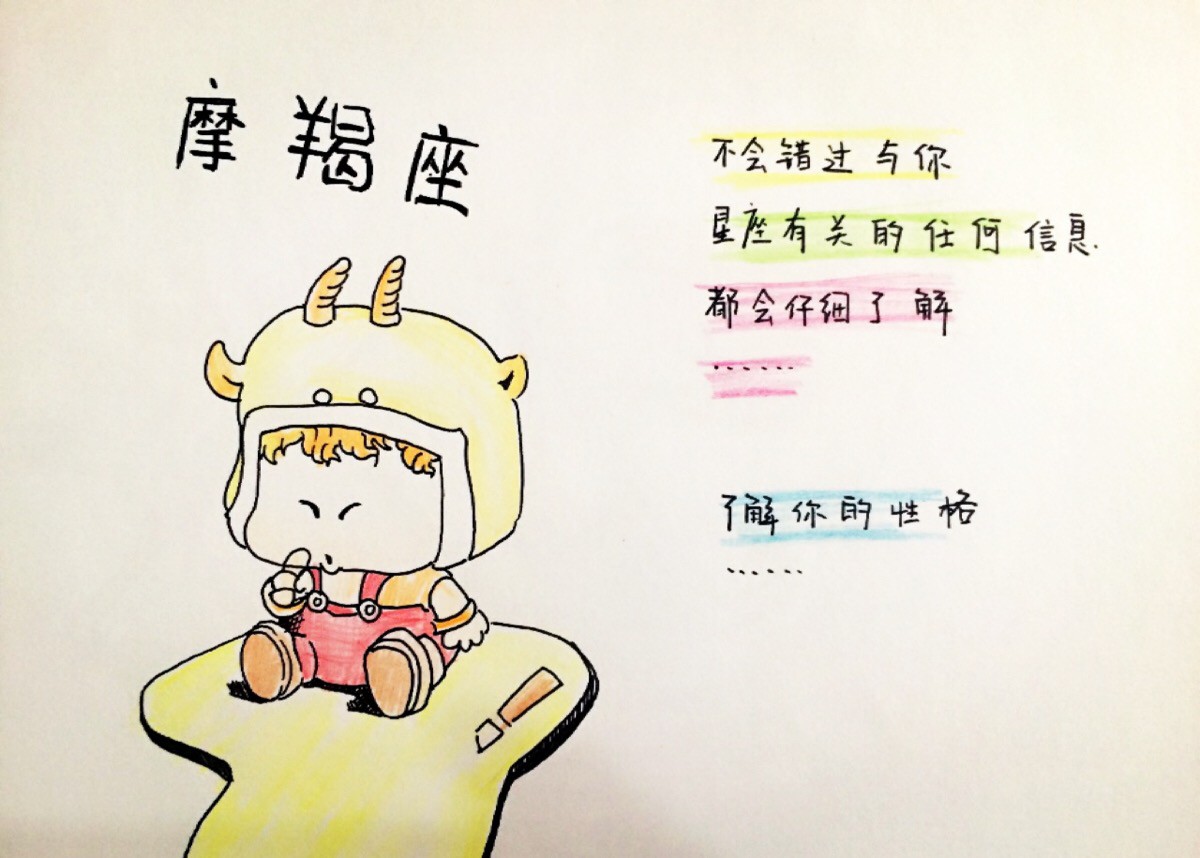 摩羯座
不会错过与你
星座有关的任何信息
都会仔细了解
......
了解你的性格
......